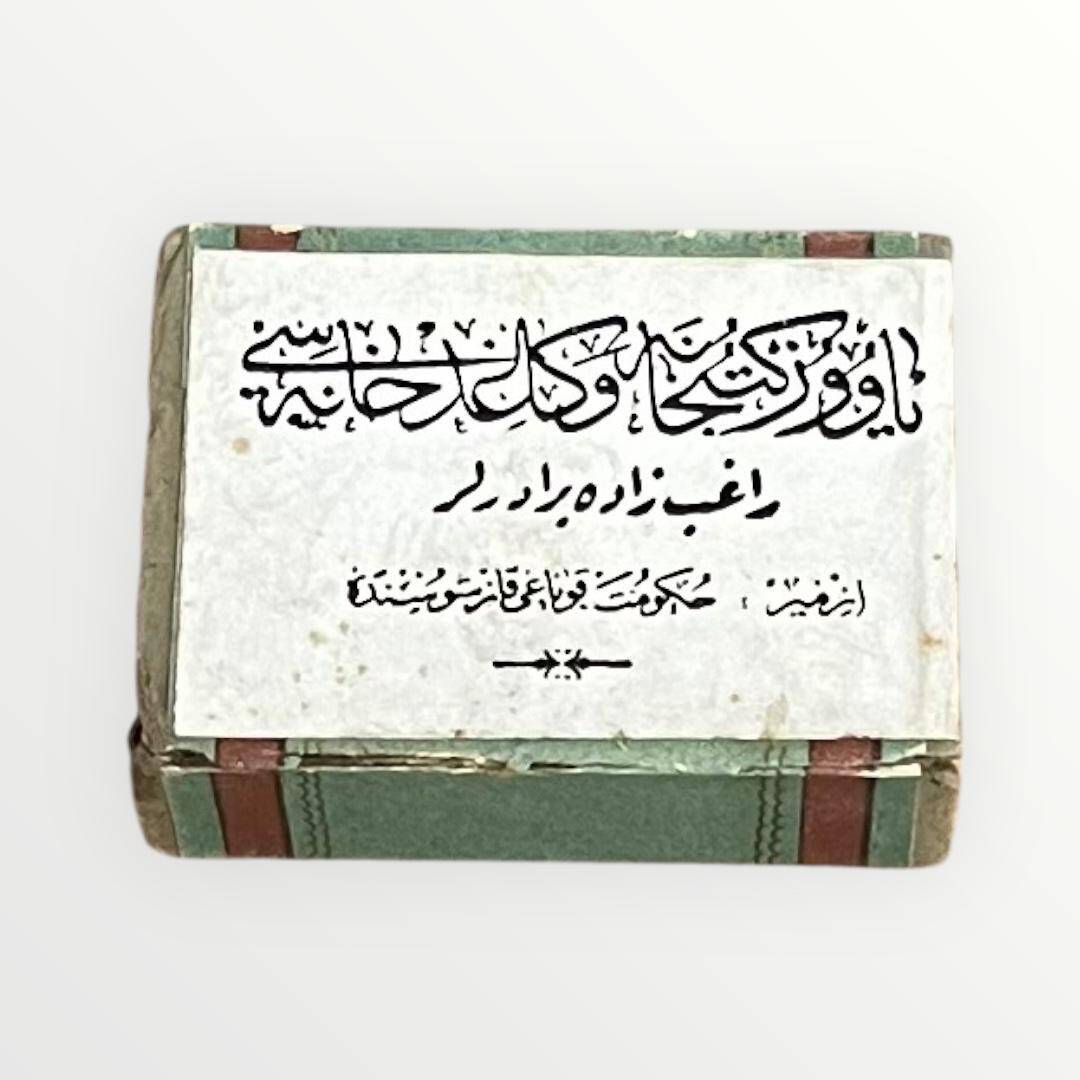 ياووز كتبخانه و كاغدخانه سی
راغب زاده برادرلر
ازمير : حكومت قوناغی قارشوسنده